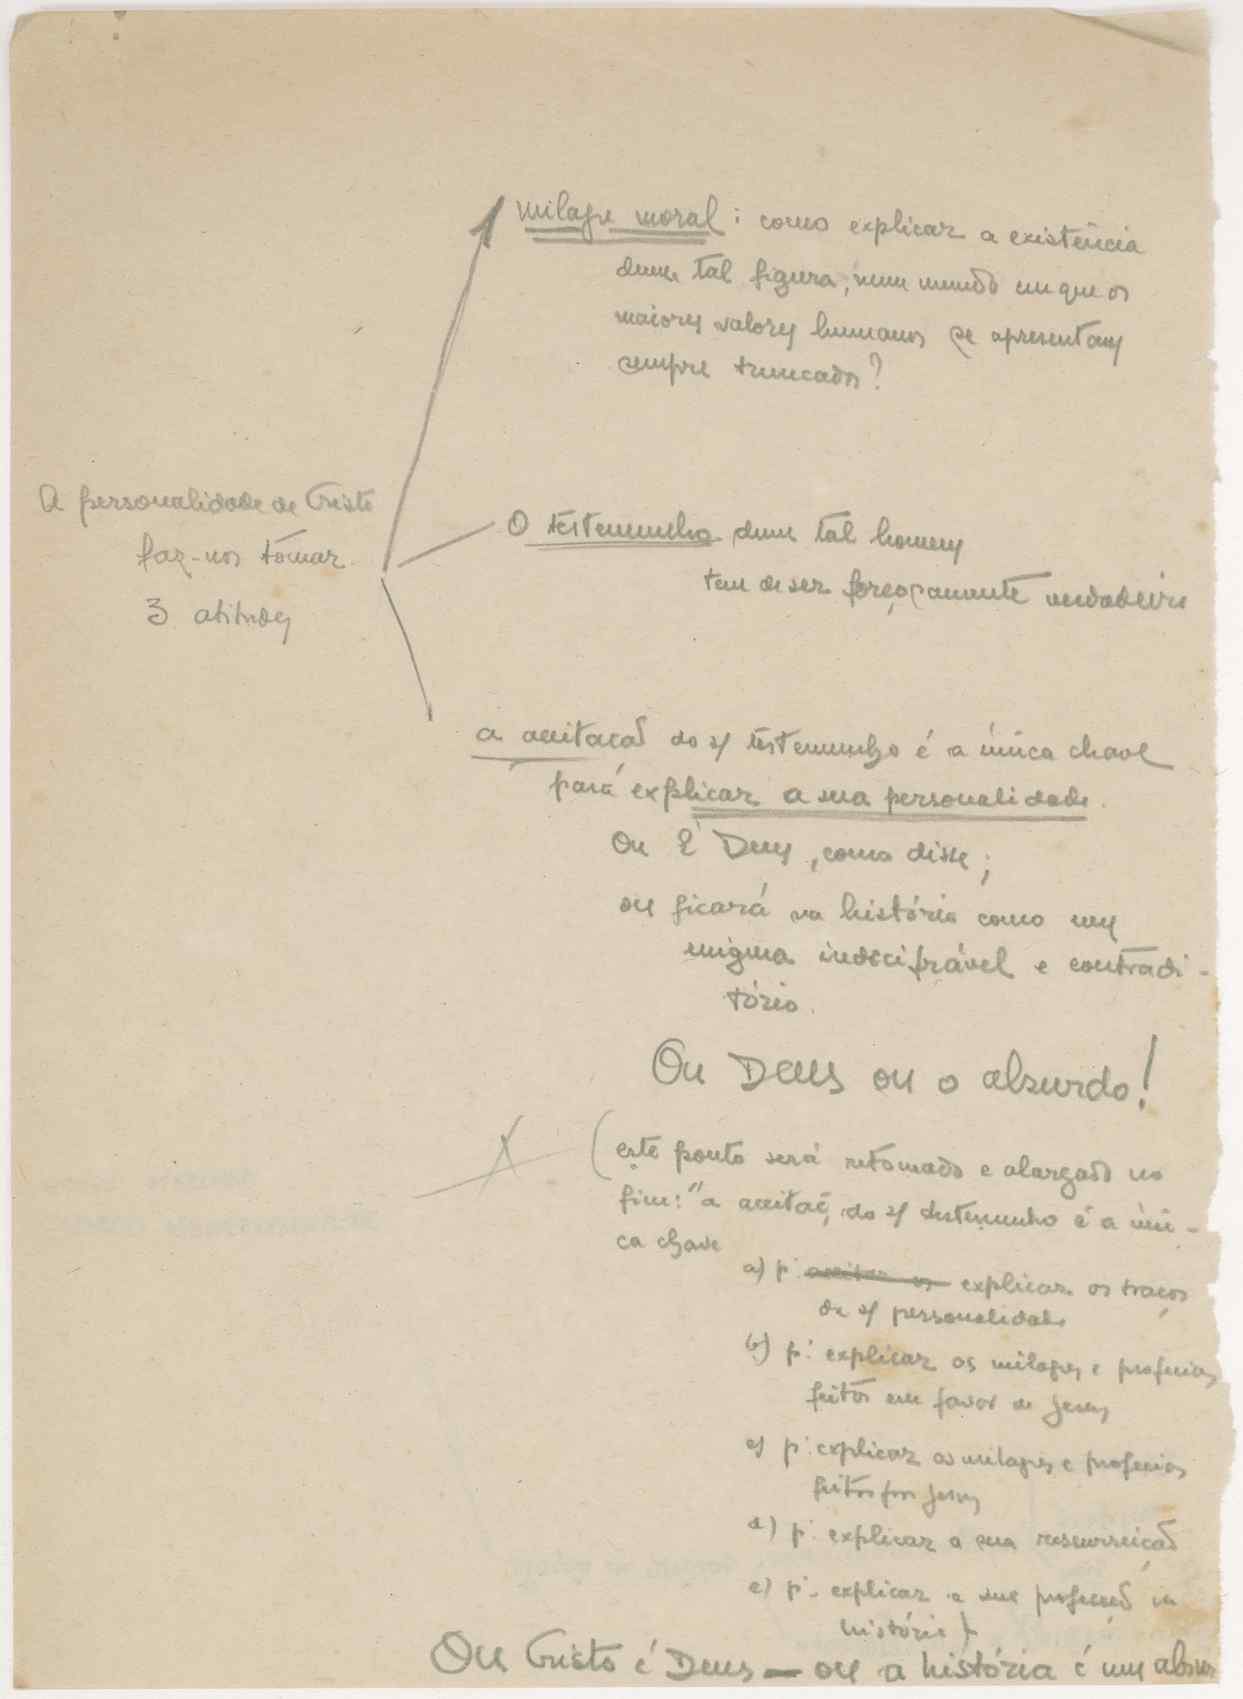 milagre moral : como explicar a existência
duma tal figura, num mundo em que os
maiores valores humanos se apresentam
sempre truncados?
A personalidade de Cristo
faz-nos tomar
3 atitudes
O testemunho dum tal homem
tem de ser forçosamente verdadeiro
a aceitação do s/ testemunho é a única chave
para explicar a sua personalidade.
Ou É Deus, como disse;
ou ficará na história como um
enigma indecifrável e contradi-
tório.
Ou Deus ou o absurdo!
(este ponto será retomado e alargado no
fim: "a aceitaç. do s/ testemunho é a úni-
ca chave
a) p. aceitar os explicar os traços
da s/ personalidade
b) p. explicar os milagres e profecias
feitos em favor de Jesus
c) p. explicar os milagres e profecias
feitos por Jesus
d) p. explicar a sua ressurreição
e) p. explicar a sua na
história)
Ou Cristo é Deus — ou a história é um absur